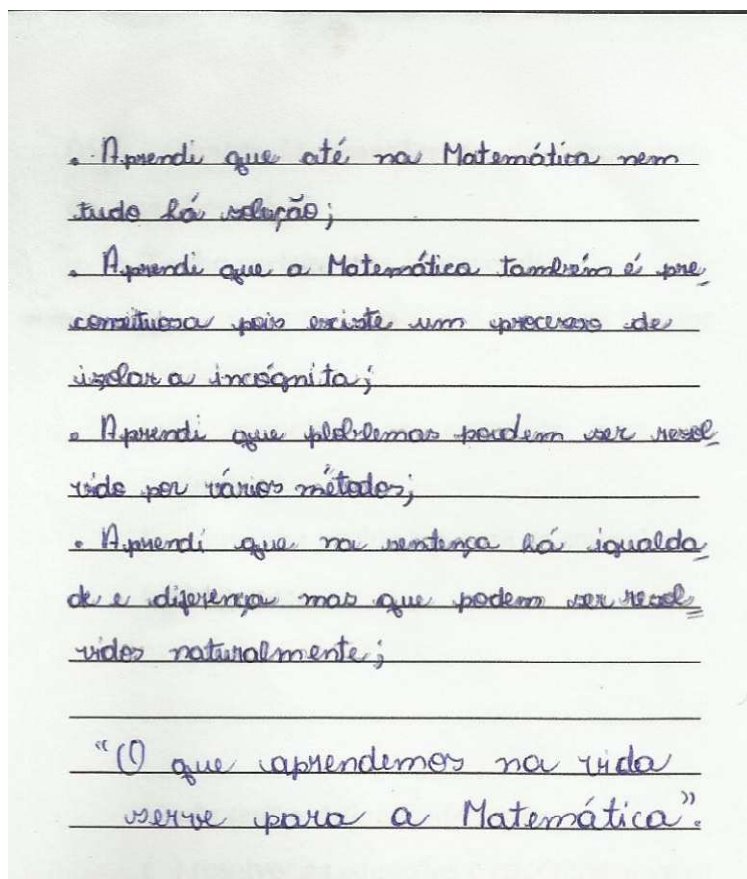 . Aprendi que até na Matemática nem
tudo há solução;
. Aprendi que a Matemática também é pre_
conceituosa pois existe um processo de
isolar a incógnita;
. Aprendi que ploblemas podem ser resol_
vido por vários métodos;
. Aprendi que na sentença há igualda_
de e diferença mas que podem ser resol_
vidos naturalmente;
"O que aprendemos na vida
serve para a Matemática".